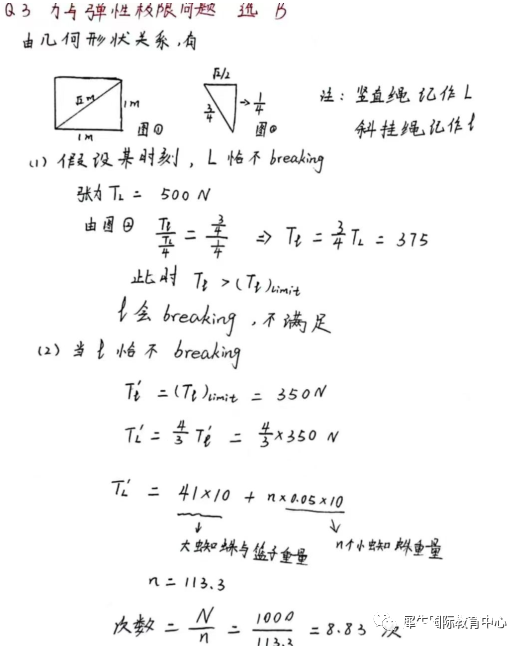 Q3 力与弹性极限问题 选 B
由几何形状关系,有
√2m 1m 1m 图①
√2/2 3/4 → 1/4 图②
注: 竖直绳记作 L
斜挂绳记作 l
(1) 假设某时刻, L 恰不 breaking
张力 T_L = 500 N
由图② T_l / (T_L/4) = (3/4) / (1/4) ⇒ T_l = 3/4 T_L = 375
此时 T_l > (T_l)limit
l 会 breaking, 不满足
(2) 当 l 恰不 breaking
T_l' = (T_l)limit = 350 N
T_L' = 4/3 T_l' = 4/3 × 350 N
T_L' = 41×10 + n×0.05×10
大蜘蛛与篮子重量 n个小蜘蛛重量
n = 113.3
次数 = N/n = 1000/113.3 = 8.83 次
犀牛国际教育中心